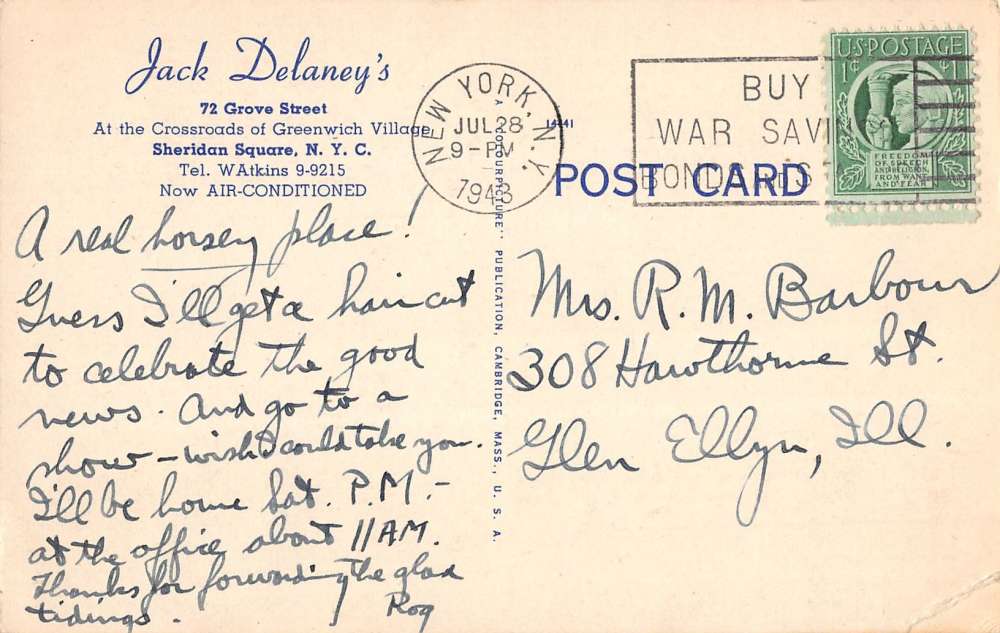 Jack Delaney's
72 Grove Street
At the Crossroads of Greenwich Village
Sheridan Square, N. Y. C.
Tel. WAtkins 9-9215
Now AIR-CONDITIONED
A real horsey place!
Guess I'll get a haircut
to celebrate the good
news. And go to a
show – wish I could take you.
I'll be home Sat. P.M. –
at the office about 11 AM.
Thanks for forwarding the glad
tidings.
Rog
NEW YORK, N.Y.
JUL 28
9-PM
1943
14441
A "COLOURPICTURE" PUBLICATION, CAMBRIDGE, MASS., U. S. A.
BUY
WAR SAVI
BONDS
POST CARD
U.S. POSTAGE
1¢ 1¢
FREEDOM
OF SPEECH
AND RELIGION,
FROM WANT
AND FEAR
Mrs. R. M. Barbour
308 Hawthorne St.
Glen Ellyn, Ill.